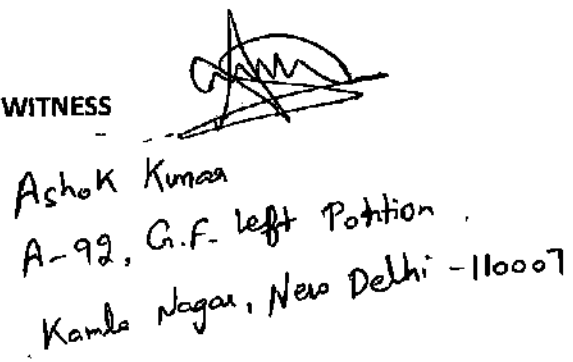 WITNESS
Ashok Kumar
A-92, G.F. left Pottion.
Kamla Nagar, New Delhi -110007